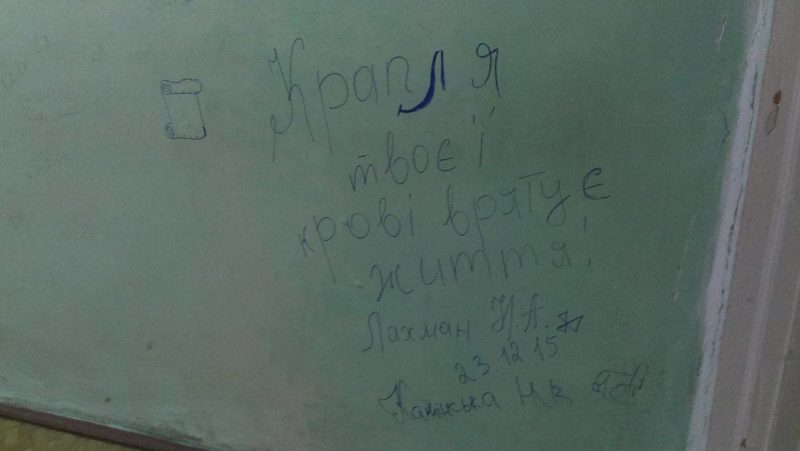 Крапля
твоєї
крові врятує
життя!
Лахман Н.А.
23 12 15
Н.В.